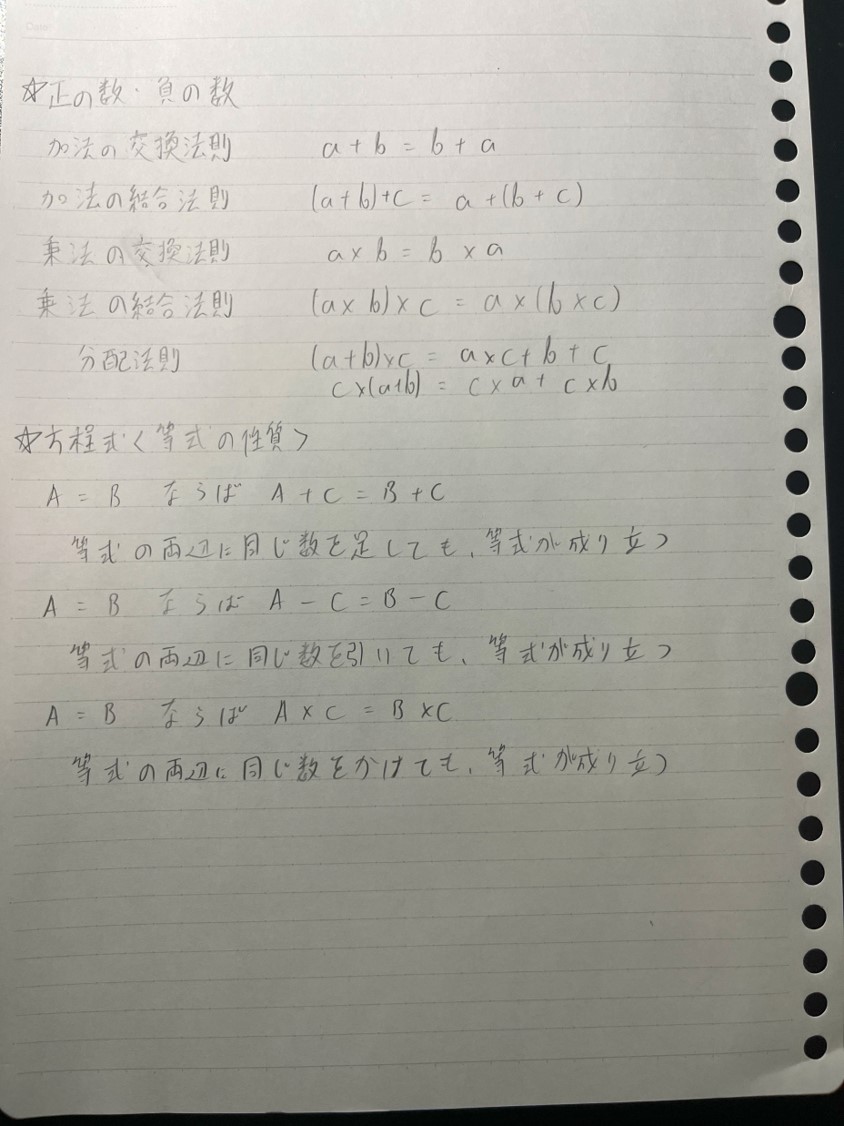 ☆正の数・負の数
加法の交換法則 a + b = b + a
加法の結合法則 (a+b)+c = a+(b+c)
乗法の交換法則 a×b = b×a
乗法の結合法則 (a×b)×c = a×(b×c)
分配法則 (a+b)×c = a×c+b+c
c×(a+b) = c×a+c×b
☆方程式<等式の性質>
A = B ならば A+C=B+C
等式の両辺に同じ数を足しても、等式が成り立つ
A = B ならば A-C=B-C
等式の両辺に同じ数を引いても、等式が成り立つ
A = B ならば A×C=B×C
等式の両辺に同じ数をかけても、等式が成り立つ